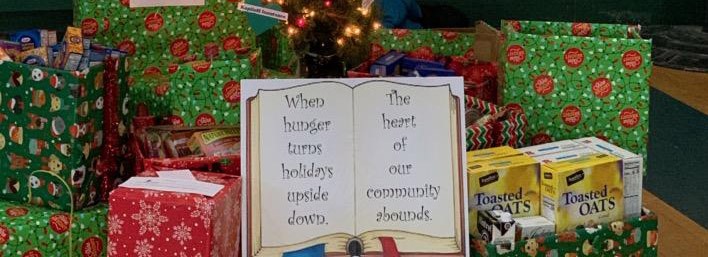 When
hunger
turns
holidays
upside
down.
The
heart
of
our
community
abounds.
Toasted
OATS
Toasted
OATS